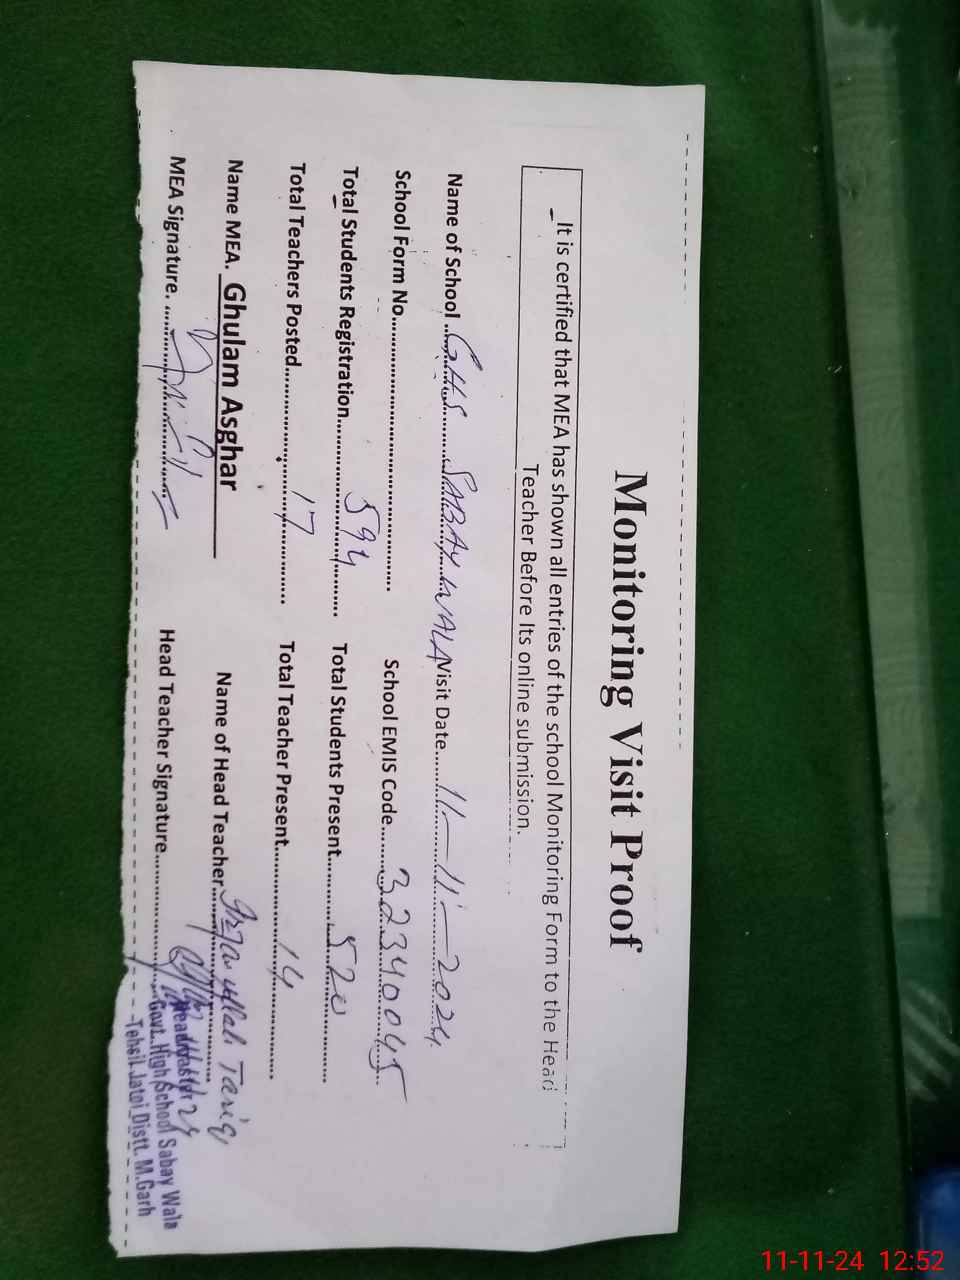 Monitoring Visit Proof
It is certified that MEA has shown all entries of the school Monitoring Form to the Head
Teacher Before Its online submission.
Name of School ........GHS SABAY WALA Visit Date............11-11-2024
School Form No............................................ School EMIS Code..........32340045
Total Students Registration..............594.......... Total Students Present..............520..........
Total Teachers Posted....................17.............. Total Teacher Present....................14..............
Name MEA. Ghulam Asghar Name of Head Teacher.......... Tariq
MEA Signature. .......................... Head Teacher Signature..........................
Headmaster
Govt. High School Sabay Wala
Tehsil Jatoi Distt. M.Garh
11-11-24 12:52